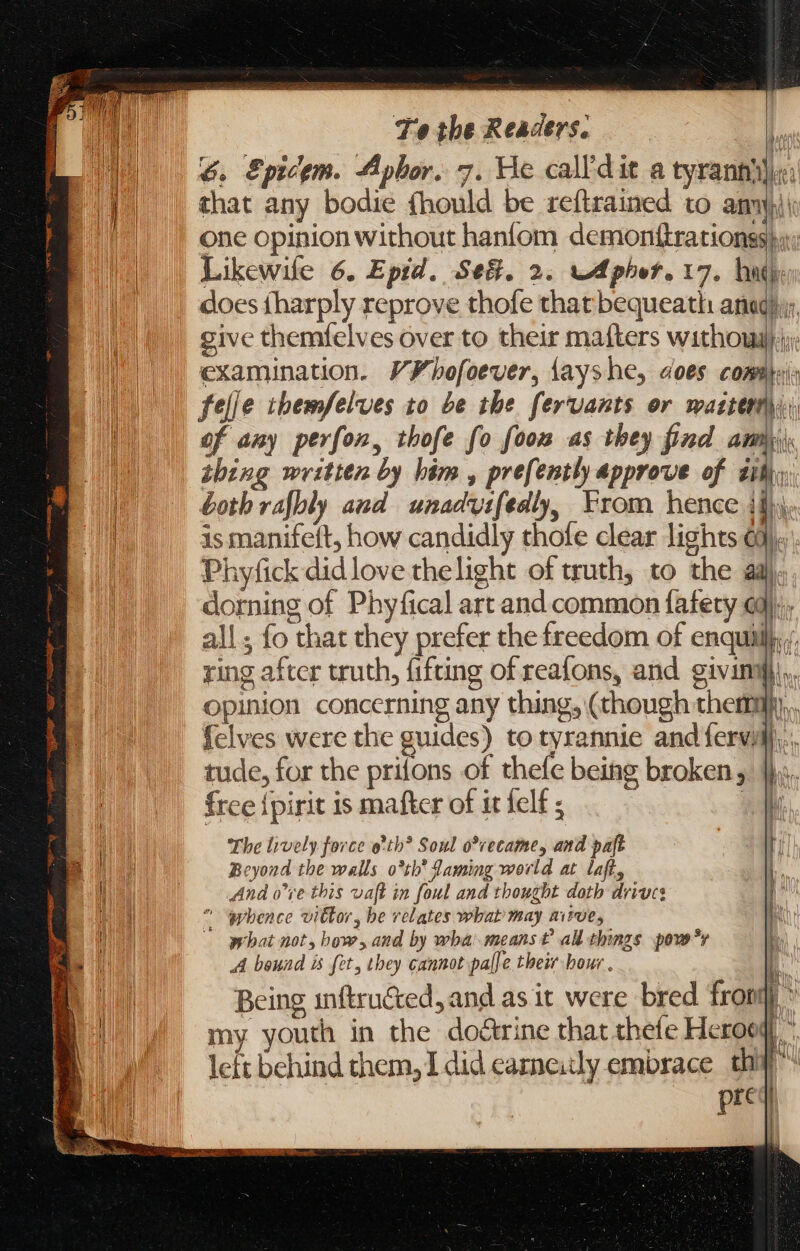 To the Readers.
6. Epidem. Aphor. 7. He call'd it a tyranni
that any bodie ſhould be reſtrained to any
one opinion without hanſom demonſtrations
Likewiſe 6. Epid. Sect. 2. Aphor. 17. he
does ſharply reprove thoſe that bequeath and
give themſelves over to their maſters withou
examination. VVhoſoever, ſays he, does con
feſſe themſelves to be the ſervants or waiter
of any perſon, thoſe ſo ſoon as they find any
thing written by him, preſently approve of it
both raſhly and unadviſedly, From hence it
is manifeſt, how candidly thoſe clear lights o
Phyſick did love the light of truth, to the a
dorning of Phyſical art and common ſafety o
all; ſo that they prefer the freedom of enqui
ring after truth, ſifting of reaſons, and givin
opinion concerning any thing, (though them
ſelves were the guides) to tyrannie and ſervi
tude, for the priſons of theſe being broken,
free ſpirit is maſter of it ſelf;
The lively force o'th' Soul o'recame, and paſt
Beyond the walls o'th' flaming world at laſt,
And o're this vaſt in ſoul and thought doth drive:
whence victor, he relates what may arive,
What not, how, and by wha means t' all things pow'r
A bound is ſet, they cannot paſſe their hour.
Being inſtructed, and as it were bred from
my youth in the doctrine that theſe Heroe
left behind them, I did earneſtly embrace th
pre